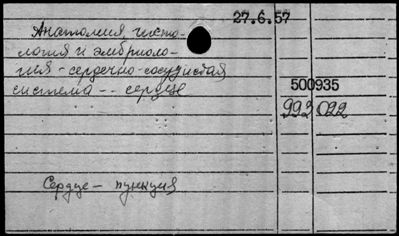 27.6.57
Анатомия, гисто-
логия и эмбриоло-
гия - сердечно-сосудистая
система -- сердце
500935
992022
Сердце - пункция